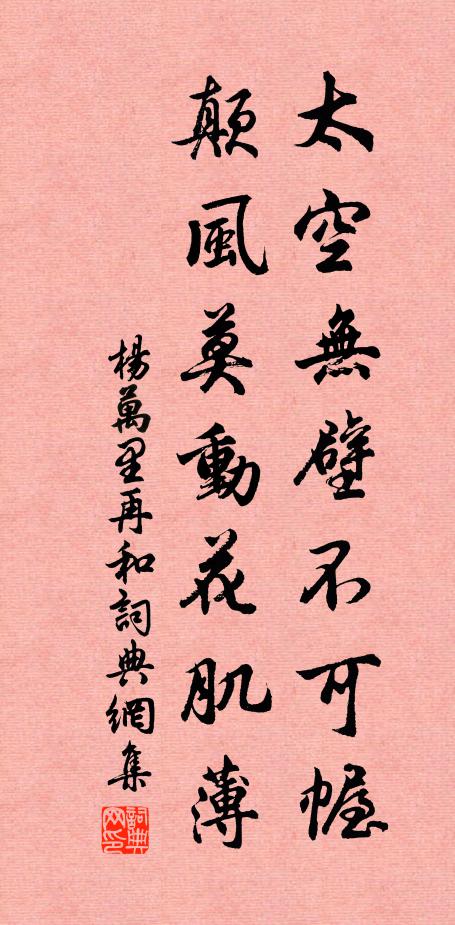 太空無壁不可幄
顛風莫動花肌薄
楊萬里再和詞典網集
詞典网印